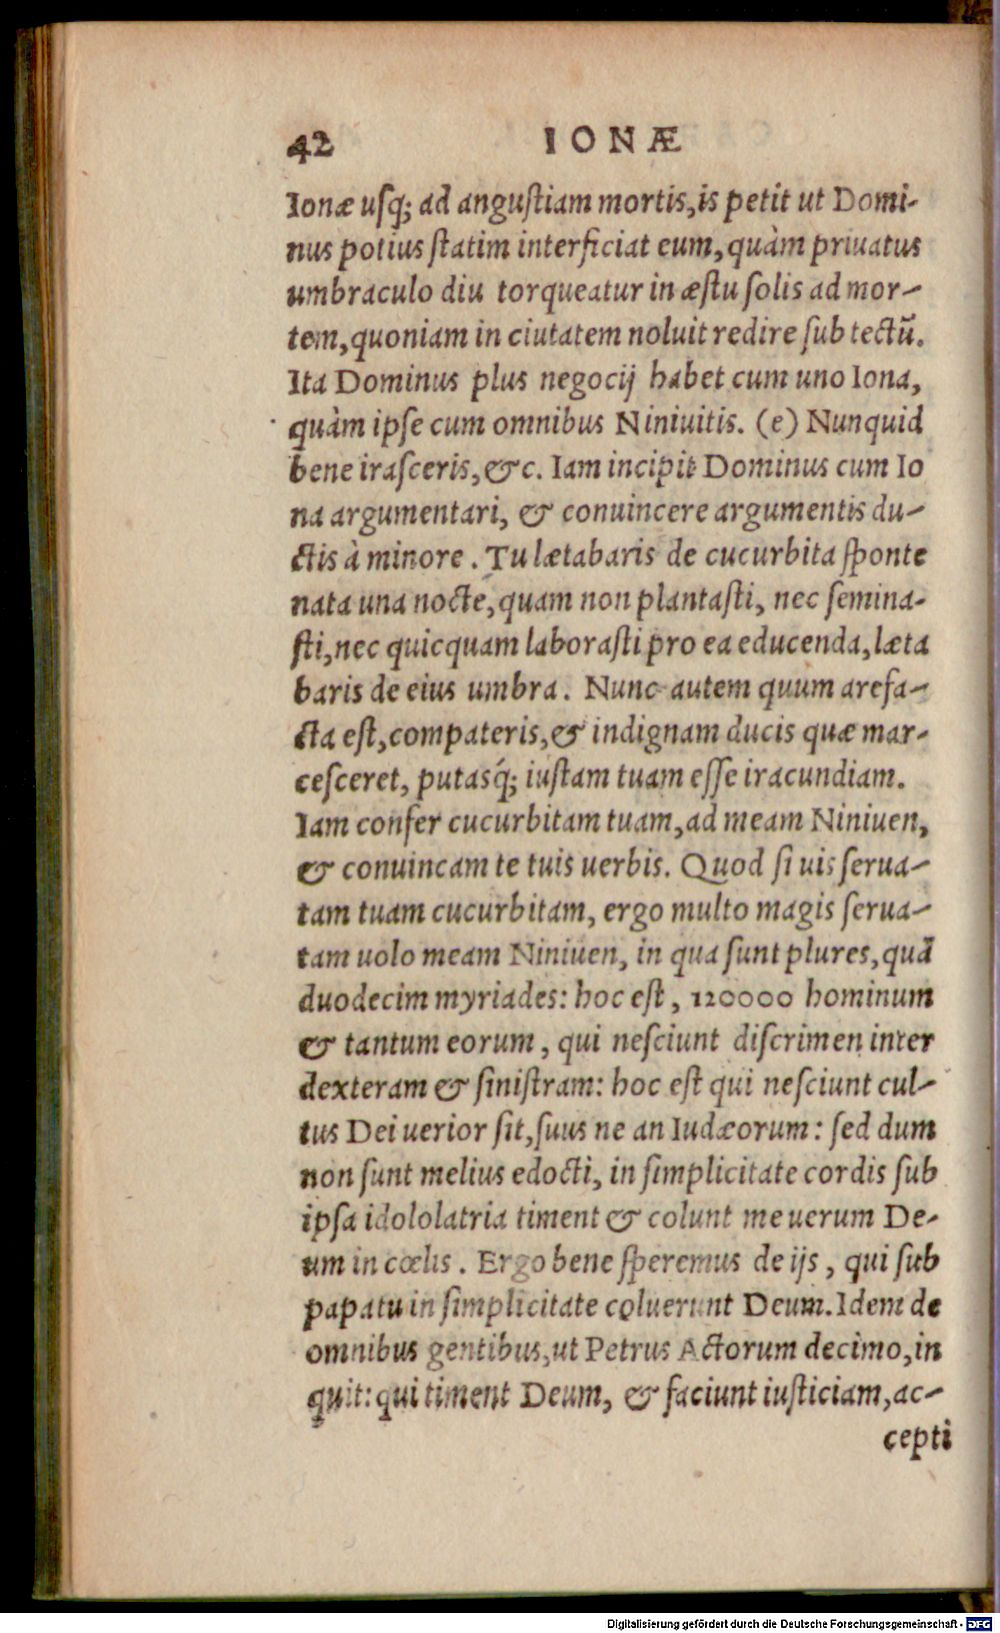 42 IONÆ
Ionæ uſq; ad anguſtiam mortis, is petit ut Domi-
nus potius ſtatim interficiat eum, quàm priuatus
umbraculo diu torqueatur in æſtu ſolis ad mor-
tem, quoniam in ciuitatem noluit redire ſub tectũ.
Ita Dominus plus negocij habet cum uno Iona,
quàm ipſe cum omnibus Niniuitis. (e) Nunquid
bene iraſceris, &c. Iam incipit Dominus cum Io
na argumentari, & conuincere argumentis du-
ctis à minore. Tu lætabaris de cucurbita ſponte
nata una nocte, quam non plantaſti, nec ſemina-
ſti, nec quicquam laboraſti pro ea educenda, læta
baris de eius umbra. Nunc autem quum arefa-
cta eſt, compateris, & indignam ducis quæ mar-
ceſceret, putasq́; iuſtam tuam eſſe iracundiam.
Iam confer cucurbitam tuam, ad meam Niniuen,
& conuincam te tuis uerbis. Quod ſi uis ſerua-
tam tuam cucurbitam, ergo multo magis ſerua-
tam uolo meam Niniuen, in qua ſunt plures, quã
duodecim myriades: hoc eſt, 120000 hominum
& tantum eorum, qui neſciunt diſcrimen inter
dexteram & ſiniſtram: hoc eſt qui neſciunt cul-
tus Dei uerior ſit, ſuus ne an Iudæorum: ſed dum
non ſunt melius edocti, in ſimplicitate cordis ſub
ipſa idololatria timent & colunt me uerum De-
um in cœlis. Ergo bene ſperemus de ijs, qui ſub
papatu in ſimplicitate coluerunt Deum. Idem de
omnibus gentibus, ut Petrus Actorum decimo, in
quit: qui timent Deum, & faciunt iuſticiam, ac-
cepti
Digitalisierung gefördert durch die Deutsche Forschungsgemeinschaft - DFG